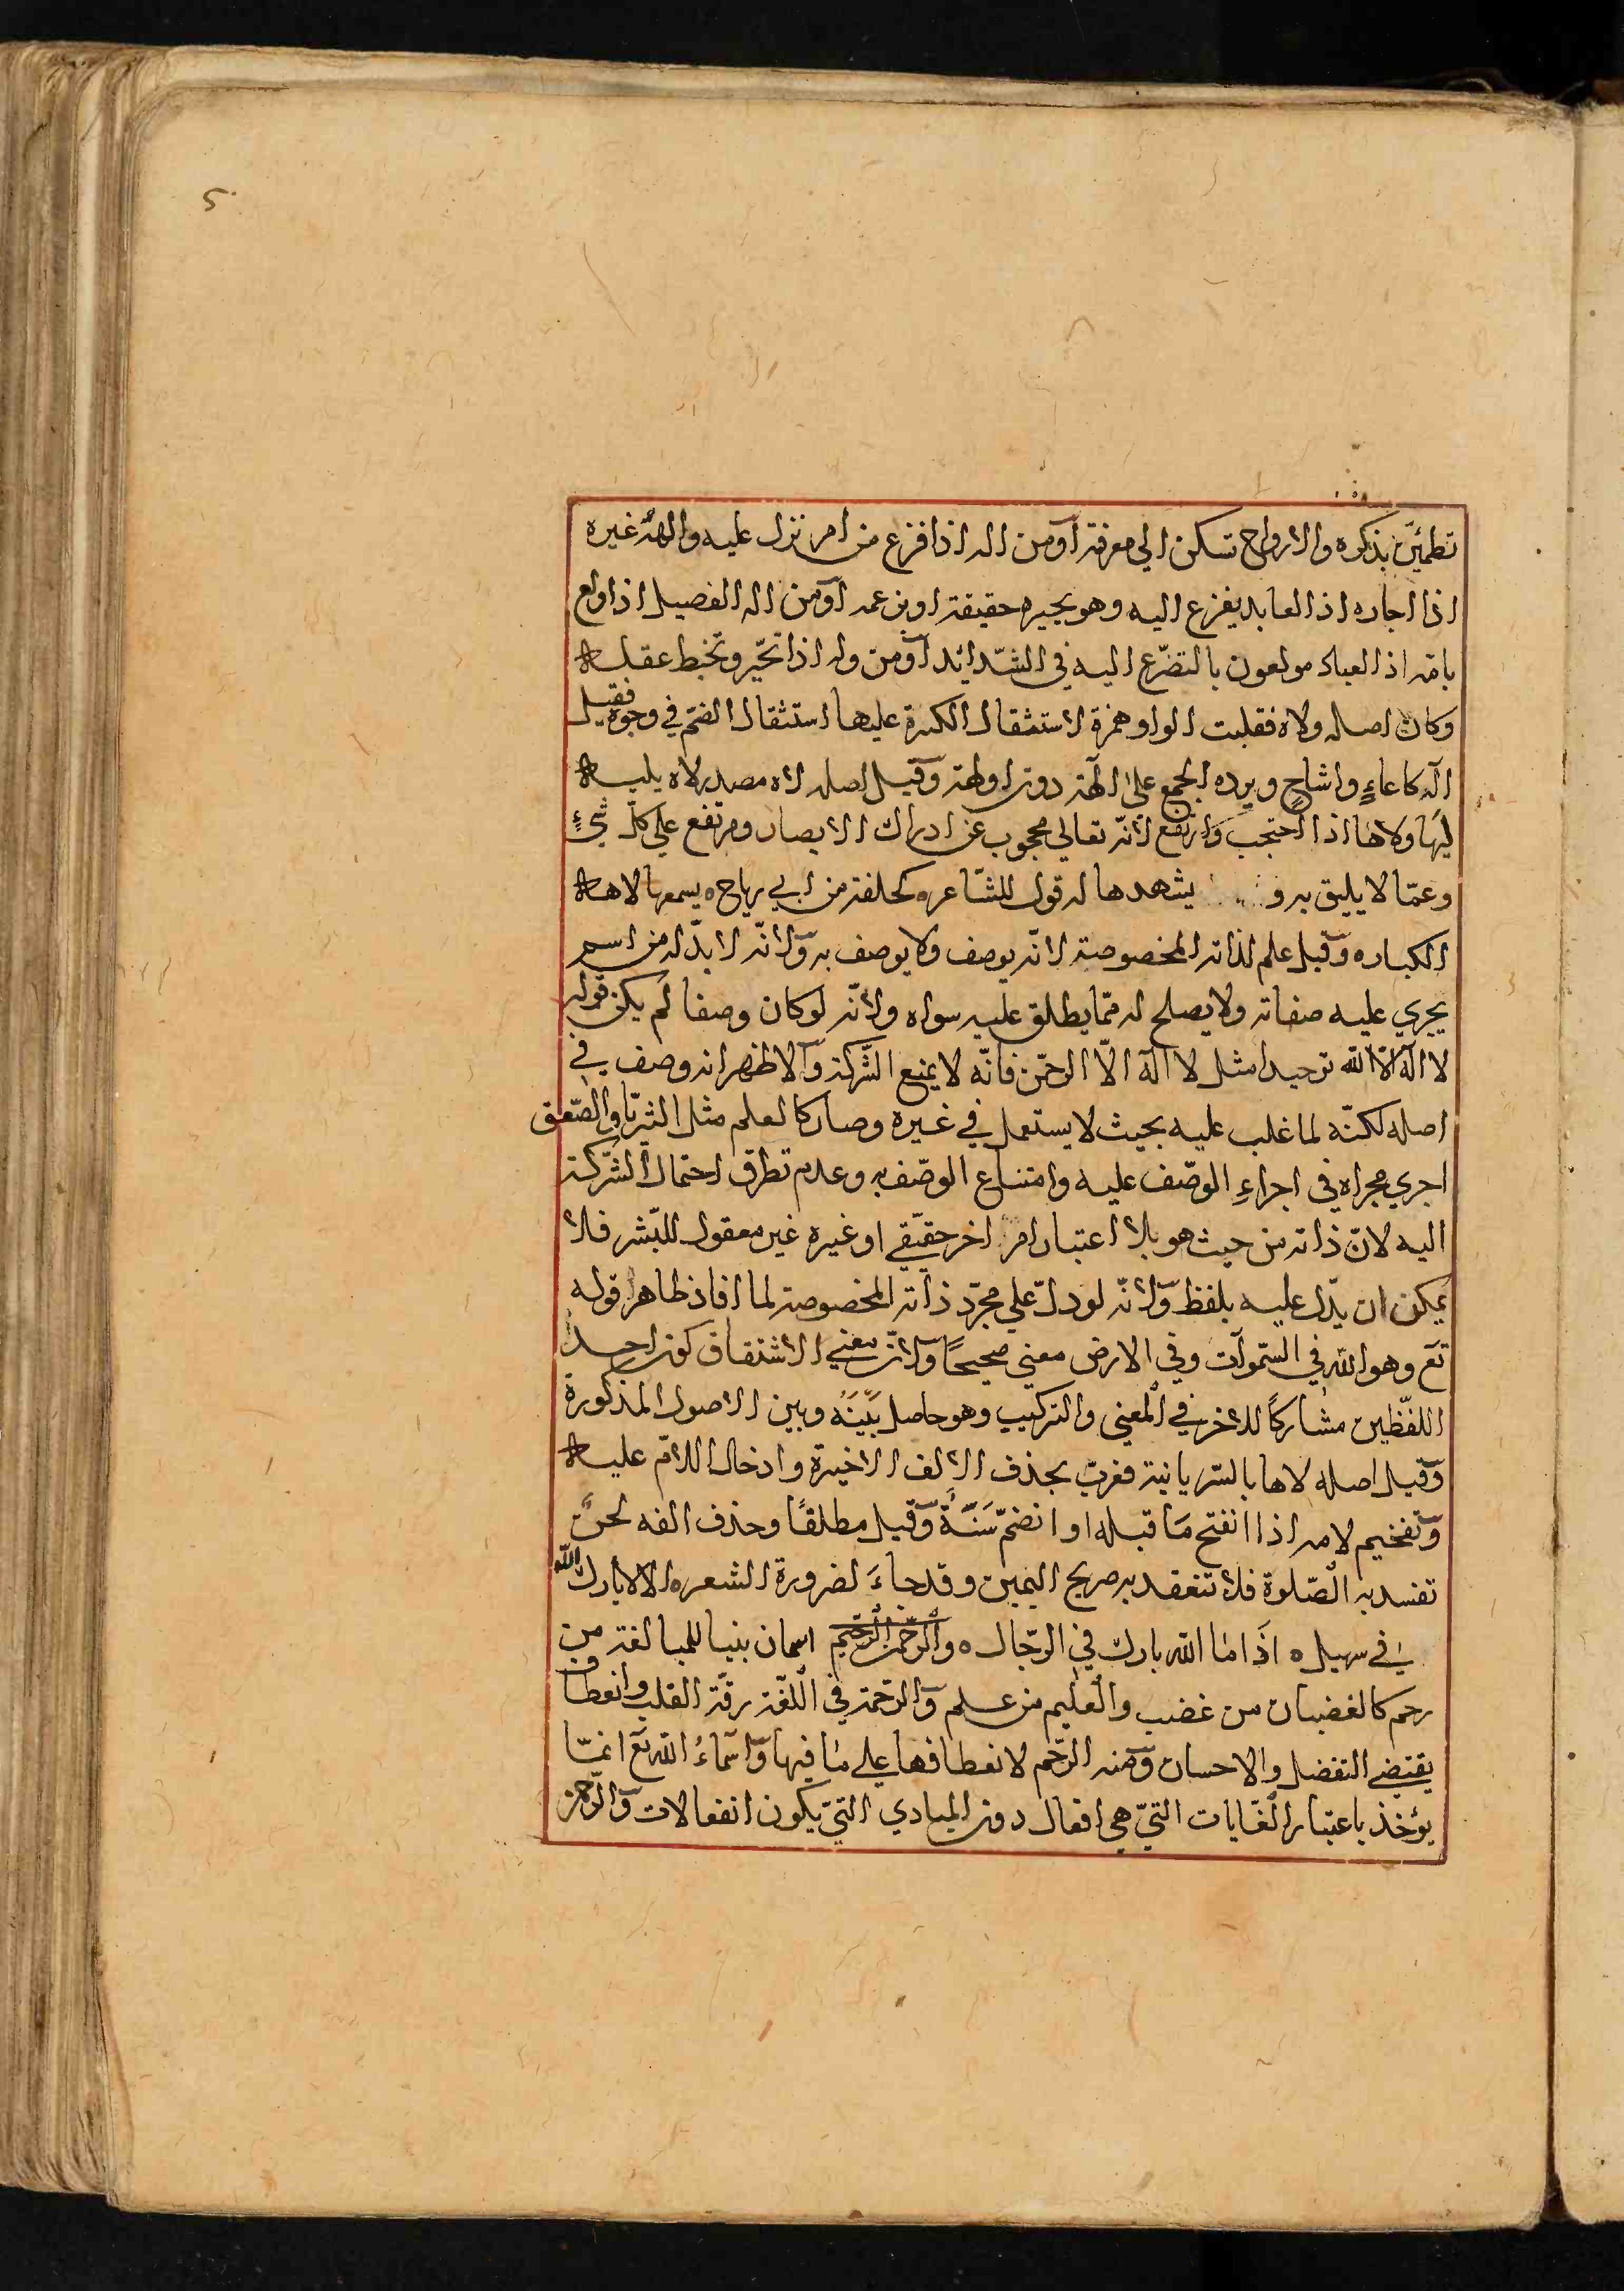 تطمئنّ بذكره والارواح تسكن الي معرفته اومن اله اذا فزع من امر نزل عليه والهه غيره
اذا اجاره اذ العابد يفزع اليه وهو يجيره حقيقة او بزعمه اومن اله الفصيل اذا ولع
بامه اذ العباد مولعون بالتضرّع اليه في الشّدائد اومن وله اذا تحيّر وتخبط عقله
وكان اصله ولاه فقلبت الواو همزة لاستثقال الكسرة عليها استثقال الضم في وجوه فقيل
اله كاعاءٍ واشاحٍ ويرده الجمع على الهة دون اولهة وقيل اصله لاه مصدر لاه يليه
ليها ولاها اذا احتجب وارتفع لانّه تعالي محجوب عن ادراك الابصار ومرتفع علي كلّ شيءٍ
وعمّا لا يليق به و يشهدها له قول الشّاعره كحلفة من ابي رياح ه يسمعها لاهه
الكباره وقيل علم لذاته المخصوصة لانّه يوصف ولا يوصف به ولانّه لا بدّ له من اسم
يجري عليه صفاته ولا يصلح له ممّا يطلق عليه سواه ولانّه لو كان وصفا لم يكن قوله
لا اله الاّ الله توحيدا مثل لا اله الاّ الرحمن فانّه لا يمنع الشّركة والاظهر انه وصف في
اصله لكنّه لما غلب عليه بحيث لا يستعمل في غيره وصار كالعلم مثل الثريّا والصّعق
اجري مجراه في اجراءِ الوصّف عليه وامتناع الوصّف به وعدم تطرق احتمال الشّركة
اليه لانّ ذاته من حيث هو بلا اعتبار امر اخر حقيقّي او غيره غير معقول للبّشر فلا
يمكن ان يدّل عليه بلفظ ولانّه لو دلّ علي مجرّد ذاته المخصوصة لما افاد ظاهر قوله
تع وهو الله في السّموات وفي الارض معني صحيحًا ولانّ معني الاشتقاق كون احد
اللفّظين مشاركاً للاخر في المعني والتركيب وهو حاصل بَينَهُ وبين الاصول المذكورة
وقيل اصله لاها بالسّريانية فعرّب بحذف الالف الاخيرة وادخال اللام عليه
وتفخيم لامه اذا انفتح مَا قبله او انضمّ سَنّةٌ وقيل مطلقًا وحذف الفه لحنٌ
تفسد به الصّلوة فلا تنعقد به صريح اليمين وقد جاءَ لضرورة الشعره الا لا بارك الله
في سهيل ه اذَا مَا الله بارك في الرّجال ه والرّحمن الرّحيم اسمان بنيا للمبالغة من
رحم كالغضبان من غضب والعليم من علم والرّحمة في اللغّة رقّة القلب وانعطاف
يقتضي التفضل والاحسان ومنه الرّحم لانعطافها علي مَا فيها واسمَاءُ الله تع انمّا
يؤخذ باعتبار الغّايات التّي هي افعال دون المبادي التّي يكون انفعالات والرّحمن